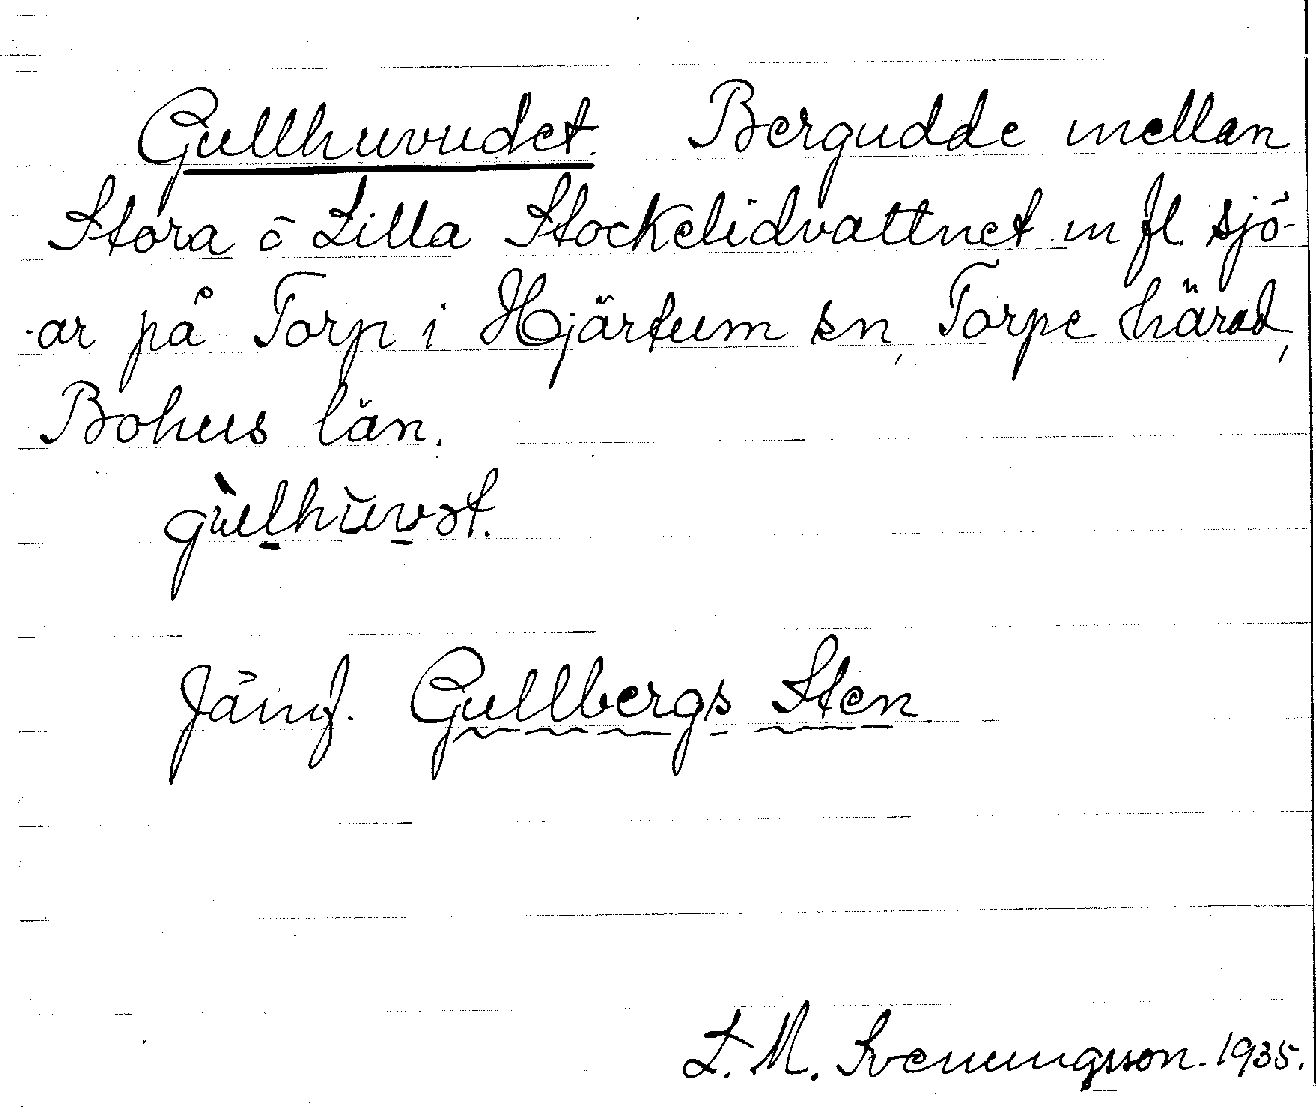 Gullhuvudet. Bergudde mellan
Stora o Lilla Stockelidvattnet m fl. sjö-
-ar på Torp i Hjärtum sn, Torpe härad,
Bohus län.
gùlhŭvət.
Jämf. Gullbergs Sten
L. M. Svenungsson. 1935.